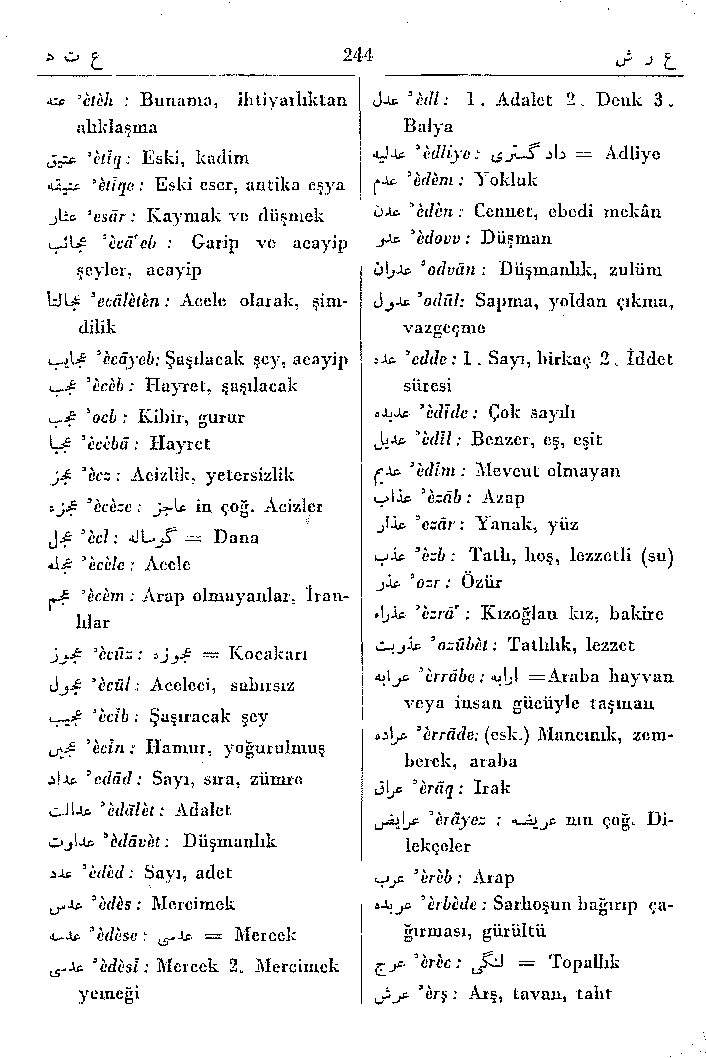 ع ت ه 244 ع ر ش
عته ’ètèh : Bunama, ihtiyarlıktan
alıklaşma
عتیق ’ètîq : Eski, kadim
عتیقه ’ètîqe : Eski eser, antika eşya
عثار ’esār : Kaymak ve düşmek
عجائب ’ècā’eb : Garip ve acayip
şeyler, acayip
عجالتا ’ecālètèn : Acele olarak, şim-
dilik
عجایب ’ècāyeb: Şaşılacak şey, acayip
عجب ’ècèb : Hayret, şaşılacak
عجب ’ocb : Kibir, gurur
عجبا ’ècèbā : Hayret
عجز ’ècz : Acizlik, yetersizlik
عجزه ’ècèze : عاجز in çoğ. Acizler
عجل ’ècl : گوساله = Dana
عجله ’ècèle : Acele
عجم ’ècèm : Arap olmayanlar, İran-
lılar
عجوز ’ècûz : عجوزه = Kocakarı
عجول ’ècûl : Aceleci, sabırsız
عجیب ’ècîb : Şaşıracak şey
عجین ’ècîn : Hamur, yoğurulmuş
عداد ’edād : Sayı, sıra, zümre
عدالت ’èdālèt : Adalet
عداوت ’èdāvèt : Düşmanlık
عدد ’èdèd : Sayı, adet
عدس ’èdès : Mercimek
عدسه ’èdèse : عدسی = Mercek
عدسی ’èdèsî : Mercek 2. Mercimek
yemeği
عدل ’èdl : 1. Adalet 2. Denk 3.
Balya
عدلیه ’èdliye : دادگستری = Adliye
عدم ’èdèm : Yokluk
عدن ’èdèn : Cennet, ebedi mekân
عدو ’èdovv : Düşman
عدوان ’odvān : Düşmanlık, zulüm
عدول ’odûl: Sapma, yoldan çıkma,
vazgeçme
عده ’edde : 1. Sayı, birkaç 2. İddet
süresi
عدیده ’èdîde : Çok sayılı
عدیل ’èdîl : Benzer, eş, eşit
عدیم ’èdîm : Mevcut olmayan
عذاب ’èzāb : Azap
عذار ’ezār : Yanak, yüz
عذب ’èzb : Tatlı, hoş, lezzetli (su)
عذر ’ozr : Özür
عذراء ’èzrā’ : Kızoğlan kız, bakire
عذوبت ’ozûbèt : Tatlılık, lezzet
عرابه ’èrrābe : ارابه =Araba hayvan
veya insan gücüyle taşınan
عراده ’èrrāde; (esk.) Mancınık, zem-
berek, araba
عراق ’èrāq : Irak
عرایض ’èrāyez : عریضه nın çoğ. Di-
lekçeler
عرب ’èrèb : Arap
عربده ’èrbède : Sarhoşun bağırıp ça-
ğırması, gürültü
عرج ’èrèc : لنگی = Topallık
عرش ’èrş : Arş, tavan, taht